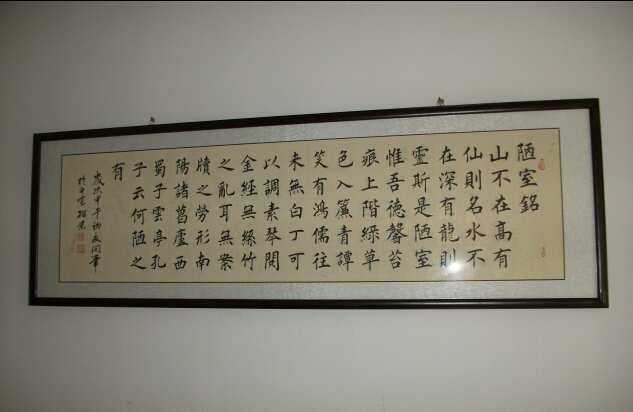 陋室銘
山不在髙有
仙則名水不
在深有龍則
靈斯是陋室
惟吾德馨苔
痕上階綠草
色入簾青譚
笑有鴻儒往
来無白丁可
以調素琴閱
金経無絲竹
之亂耳無案
牘之勞形南
陽諸葛廬西
蜀子雲亭孔
子云何陋之
有
歲次甲午